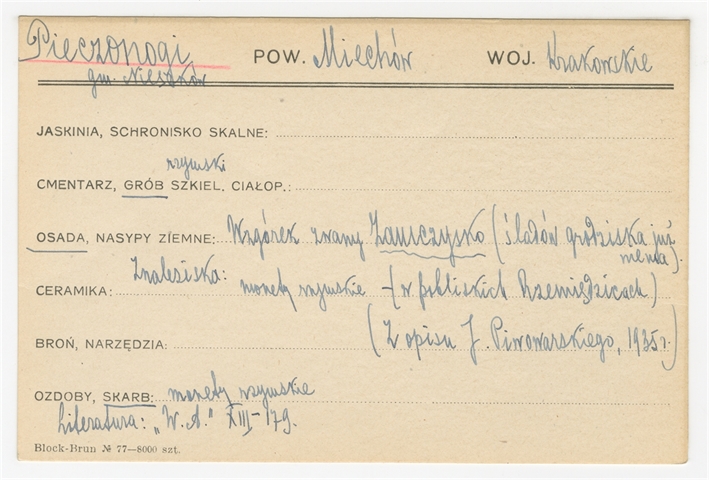 Pieczonogi POW. Miechów WOJ. Krakowskie
gm. Nieszków
JASKINIA, SCHRONISKO SKALNE:
rzymski
CMENTARZ, GRÓB SZKIEL, CIAŁOP.:
OSADA, NASYPY ZIEMNE: Wzgórek zwany Zamczysko (śladów grodziska już
niema).
Znalesiska:
CERAMIKA: monety rzymskie - (w pobliskich Rzemiędzicach)
BROŃ, NARZĘDZIA: (Z opisu J. Piwowarskiego, 1935 r.)
OZDOBY, SKARB: monety rzymskie
Literatura: „W. A." XIII - 179.
Block-Brun № 77—8000 szt.